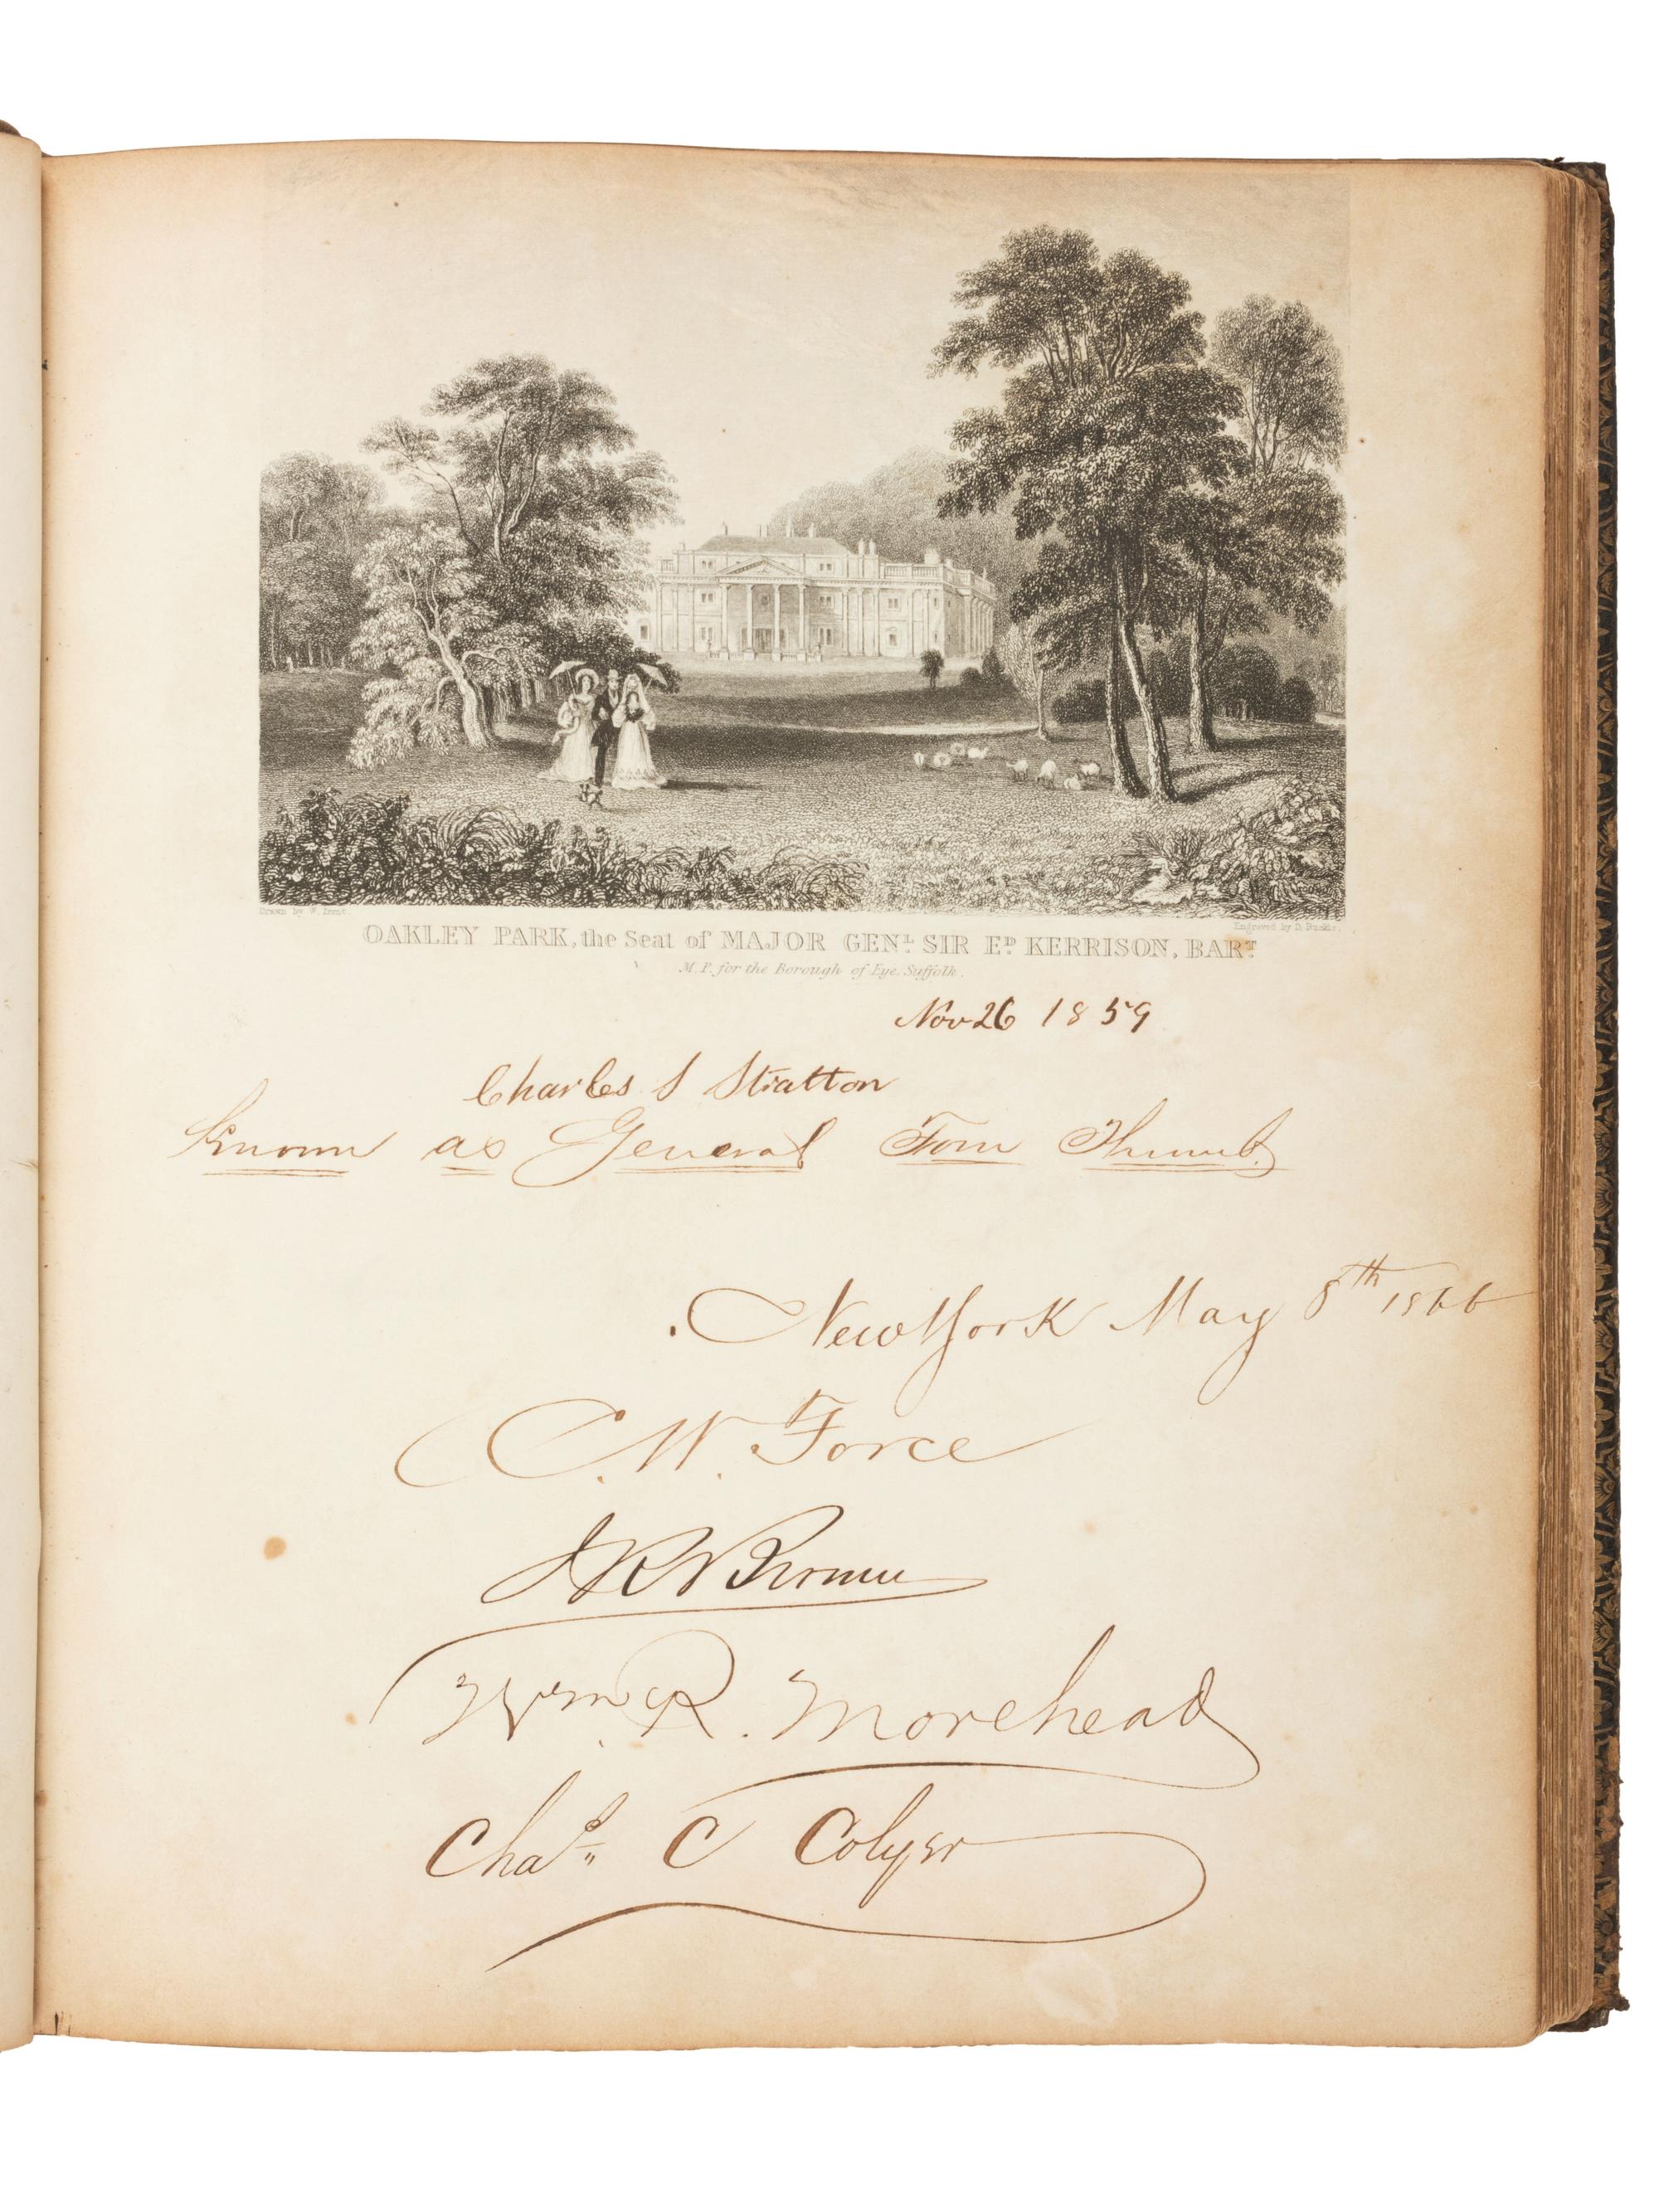 Drawn by W.
Engraved by D.
OAKLEY PARK, the Seat of MAJOR GENL. SIR ED. KERRISON, BART.
M.P. for the Borough of Eye, Suffolk.
Nov 26 1859
Charles S Stratton
Known as General Tom Thumb.
New York May 8th 1866
C. W. Force
Wm. R. Morehead
Chas. C Colyer